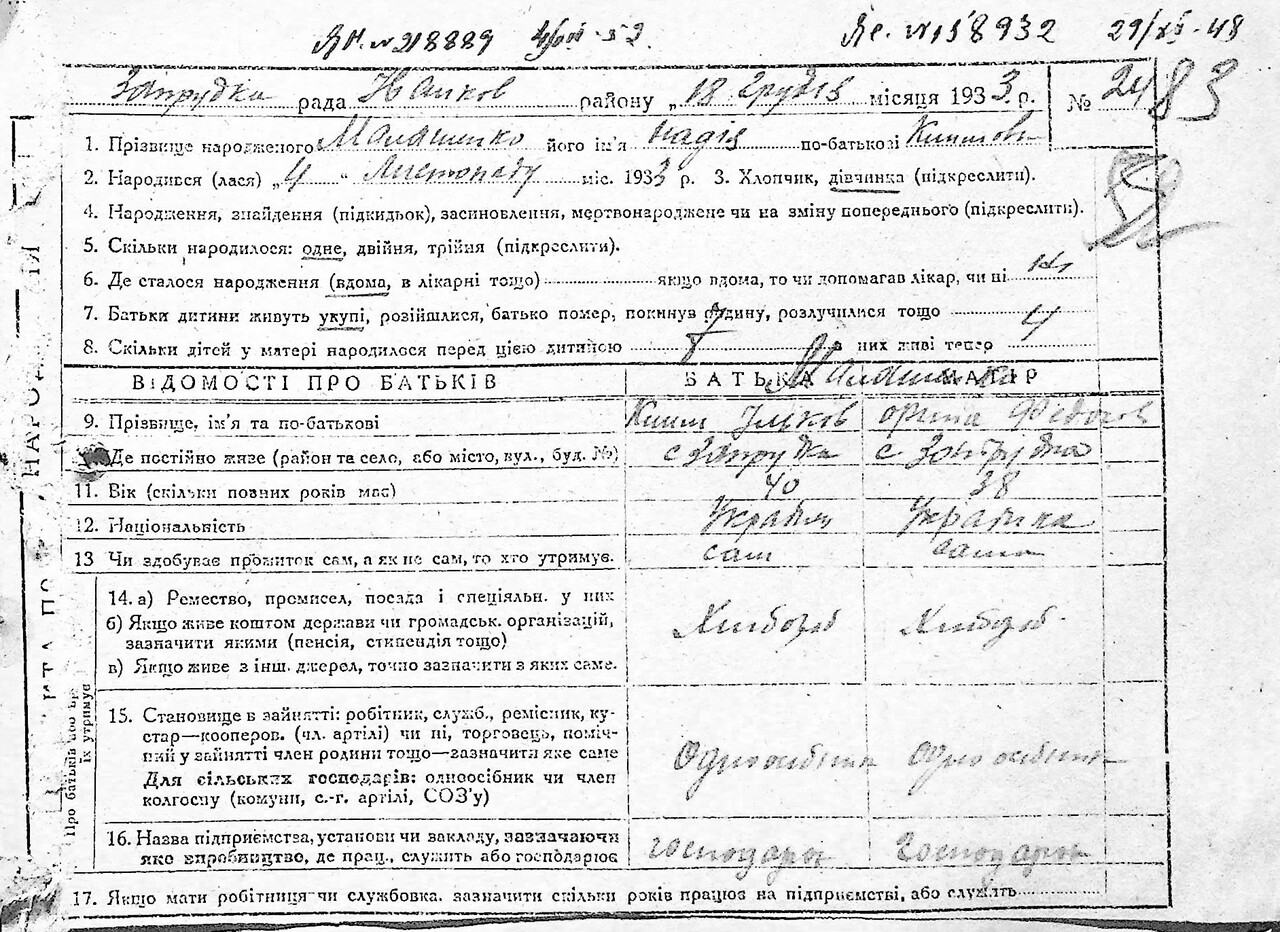 № 218889 Re. №158932 29/XII-48
Запрудка рада району „18 Грудів місяця 1933 р. № 24 83
1. Прізвище народженого Малашенко його ім'я Надія по-батькові
2. Народився (лася) „4 " Листопаду міс. 1933 р. 3. Хлопчик, дівчинка (підкреслити).
4. Народження, знайдення (підкидьок), засиновлення, мертвонароджене чи на зміну попереднього (підкреслити).
5. Скільки народилося: одне, двійня, трійня (підкреслити).
6. Де сталося народження (вдома, в лікарні тощо) якщо вдома, то чи допомагав лікар, чи ні
7. Батьки дитини живуть укупі, розійшлися, батько помер, покинув родину, розлучилися тощо
8. Скільки дітей у матері народилося перед цією дитиною 8 з них живі тепер 4
ВІДОМОСТІ ПРО БАТЬКІВ БАТЬКА МАТІР
Малашенко
9. Прізвище, ім'я та по-батькові
Де постійно живе (район та село, або місто, вул., буд. №) с Запрудка с Запрудка
11. Вік (скільки повних років має) 40 38
12. Національність Українка
13 Чи здобуває прожиток сам, а як не сам, то хто утримує. сам сама
14. а) Ремество, промисел, посада і спеціяльн. у них
б) Якщо живе коштом держави чи громадськ. організацій,
зазначити якими (пенсія, стипендія тощо) Хлібороб Хлібороб
в) Якщо живе з інш. джерел, точно зазначити з яких саме.
15. Становище в зайнятті: робітник, служб., ремісник, ку-
стар—кооперов. (чл. артілі) чи ні, торговець, поміч-
ний у зайнятті член родини тощо—зазначити яке саме
Одноосібник Одноосібник
Для сільських господарів: одноосібник чи член
колгоспу (комуни, с.-г. артілі, СОЗ'у)
16. Назва підприємства, установи чи закладу, зазначаючи
яке виробництво, де прац., служить або господарює господарює господарює
17. Якщо мати робітниця чи службовка. зазначити скільки років працює на підприємстві, або служить
їх утримує